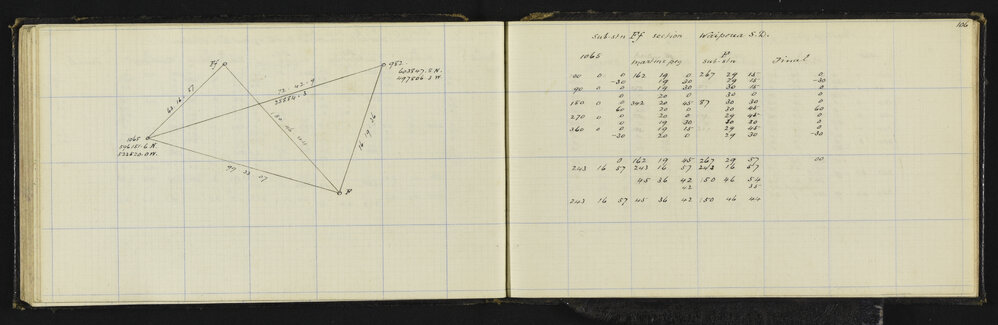 Ff
982
603847.8 N.
497806.3 W
63.16.57
72 42.9
25884.3
150 46 44
16 19 26
1065
596151.6 N.
522520.0 W.
99 33 07
P
106
Sub.stn Ff section Waiprua S.D.
1065 P Final
marine peg sub.stn
00 0 0 162 19 0 267 29 15 0
-30 19 30 29 15 -30
90 0 0 19 30 30 15 0
0 20 0 30 0 0
180 0 0 342 20 45 87 30 30 0
60 20 0 30 45 60
270 0 0 20 0 29 45 0
0 19 30 30 30 0
360 0 0 19 15 29 45 0
-30 20 0 29 30 -30
0 162 19 45 267 29 57 00
243 16 57 243 16 57 243 16 57
45 36 42 150 46 54
42 35
243 16 57 45 36 42 150 46 44